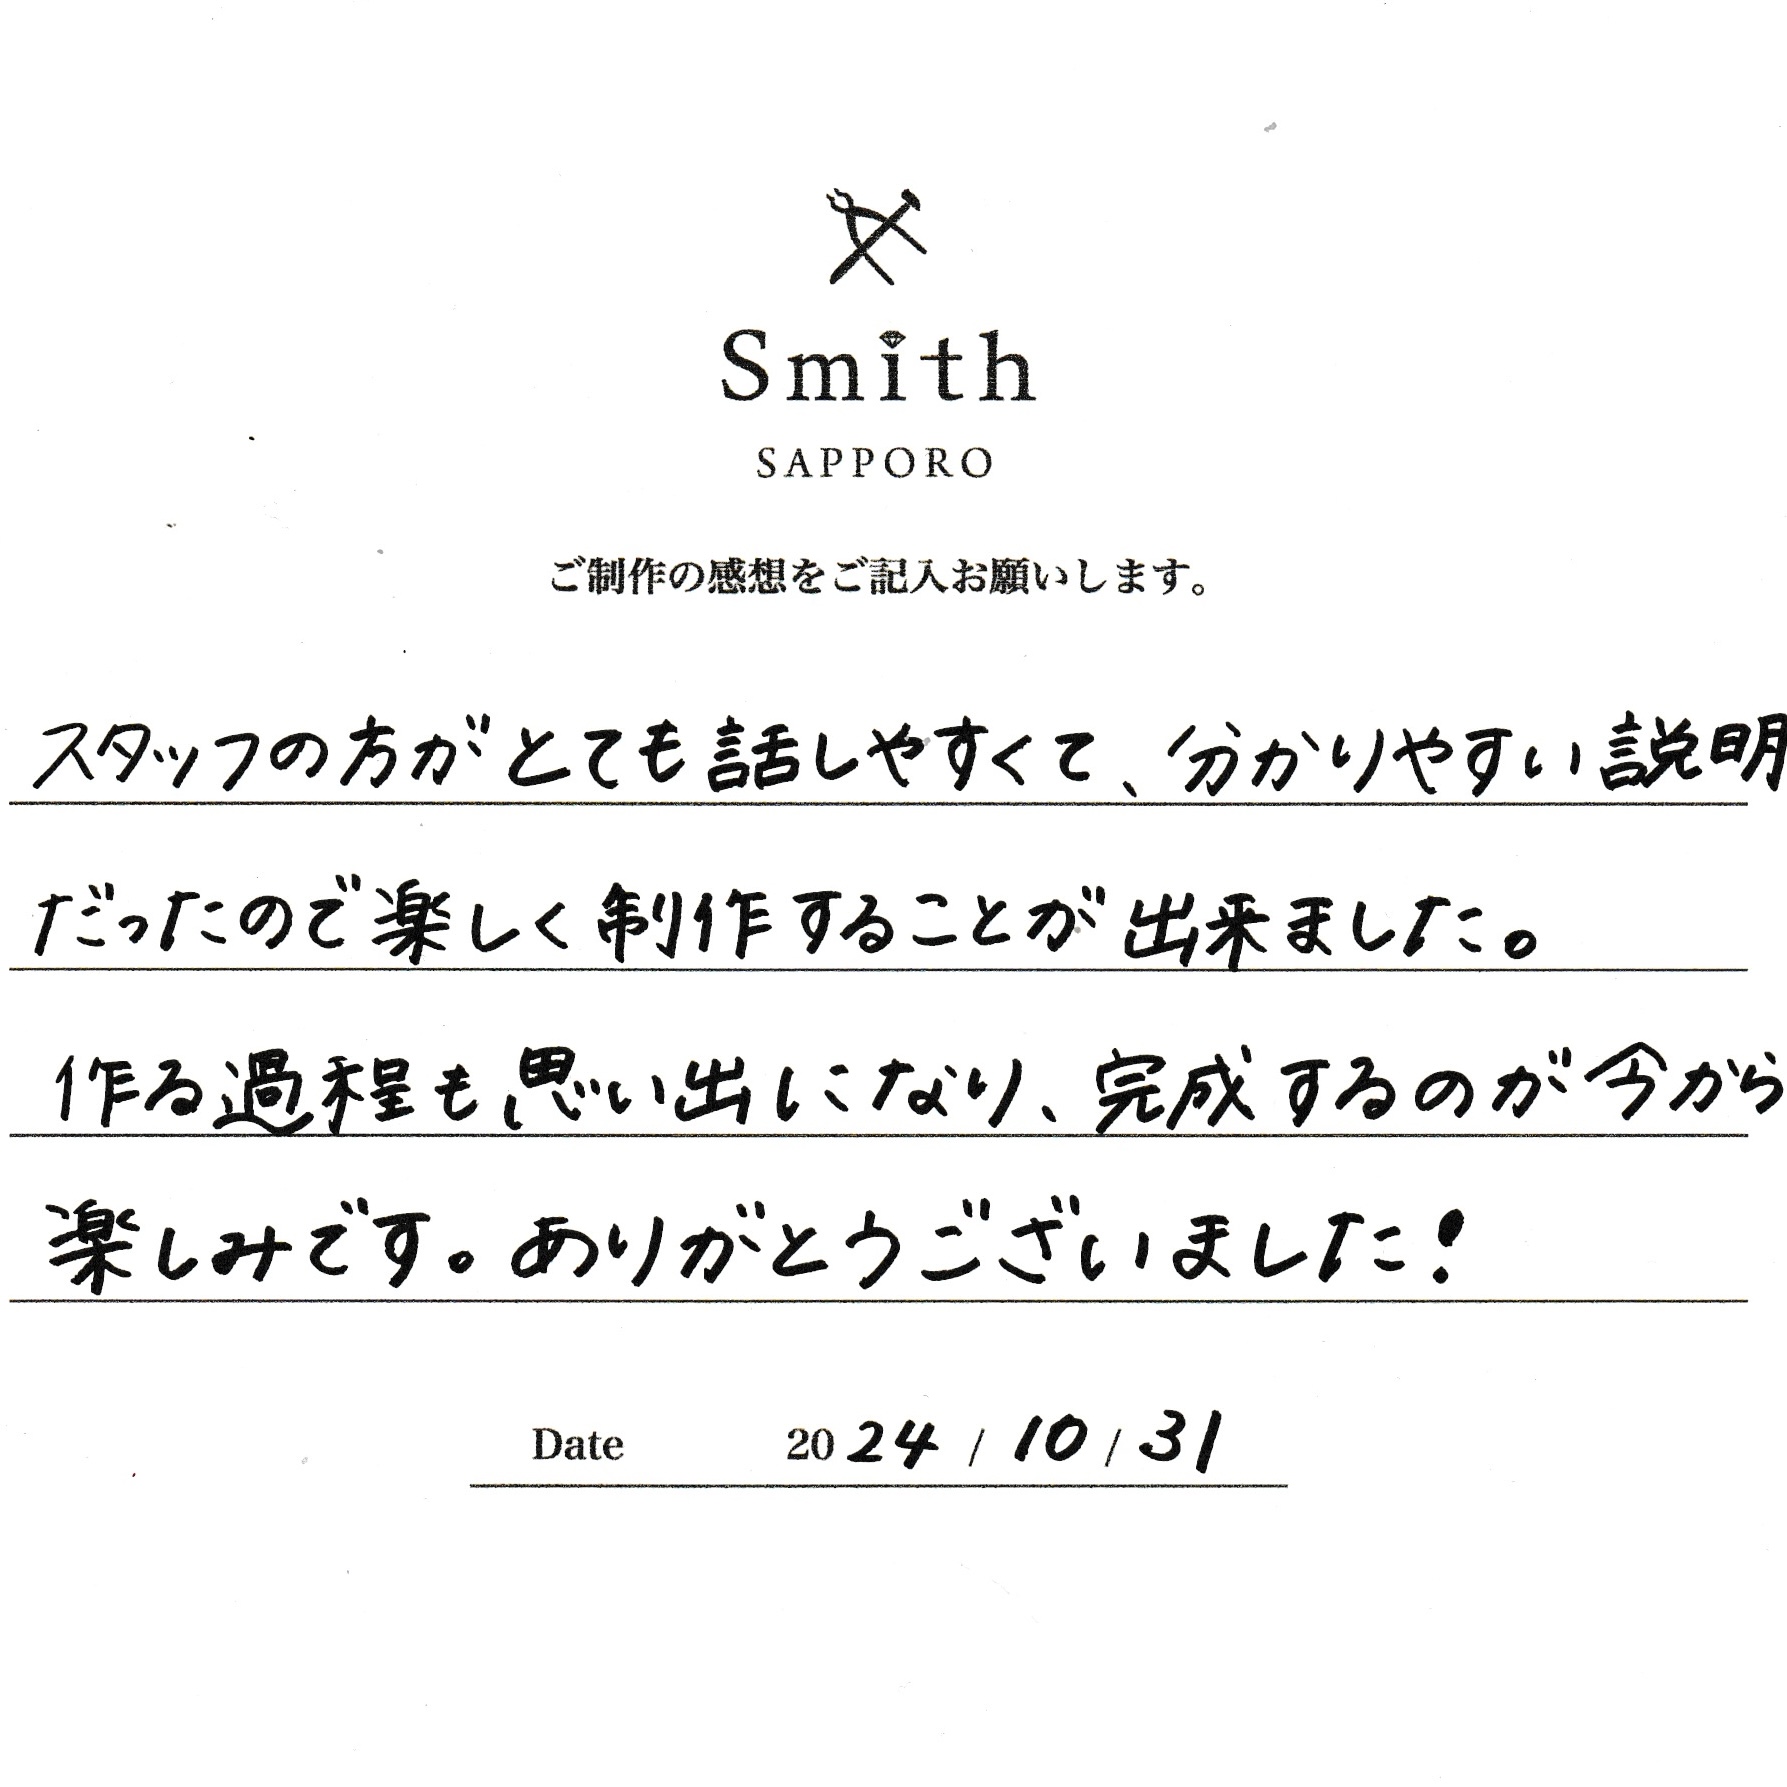 Smith
SAPPORO
ご制作の感想をご記入お願いします。
スタッフの方がとても話しやすくて、分かりやすい説明
だったので楽しく制作することが出来ました。
作る過程も思い出になり、完成するのが今から
楽しみです。ありがとうございました!
Date 2024 / 10 / 31